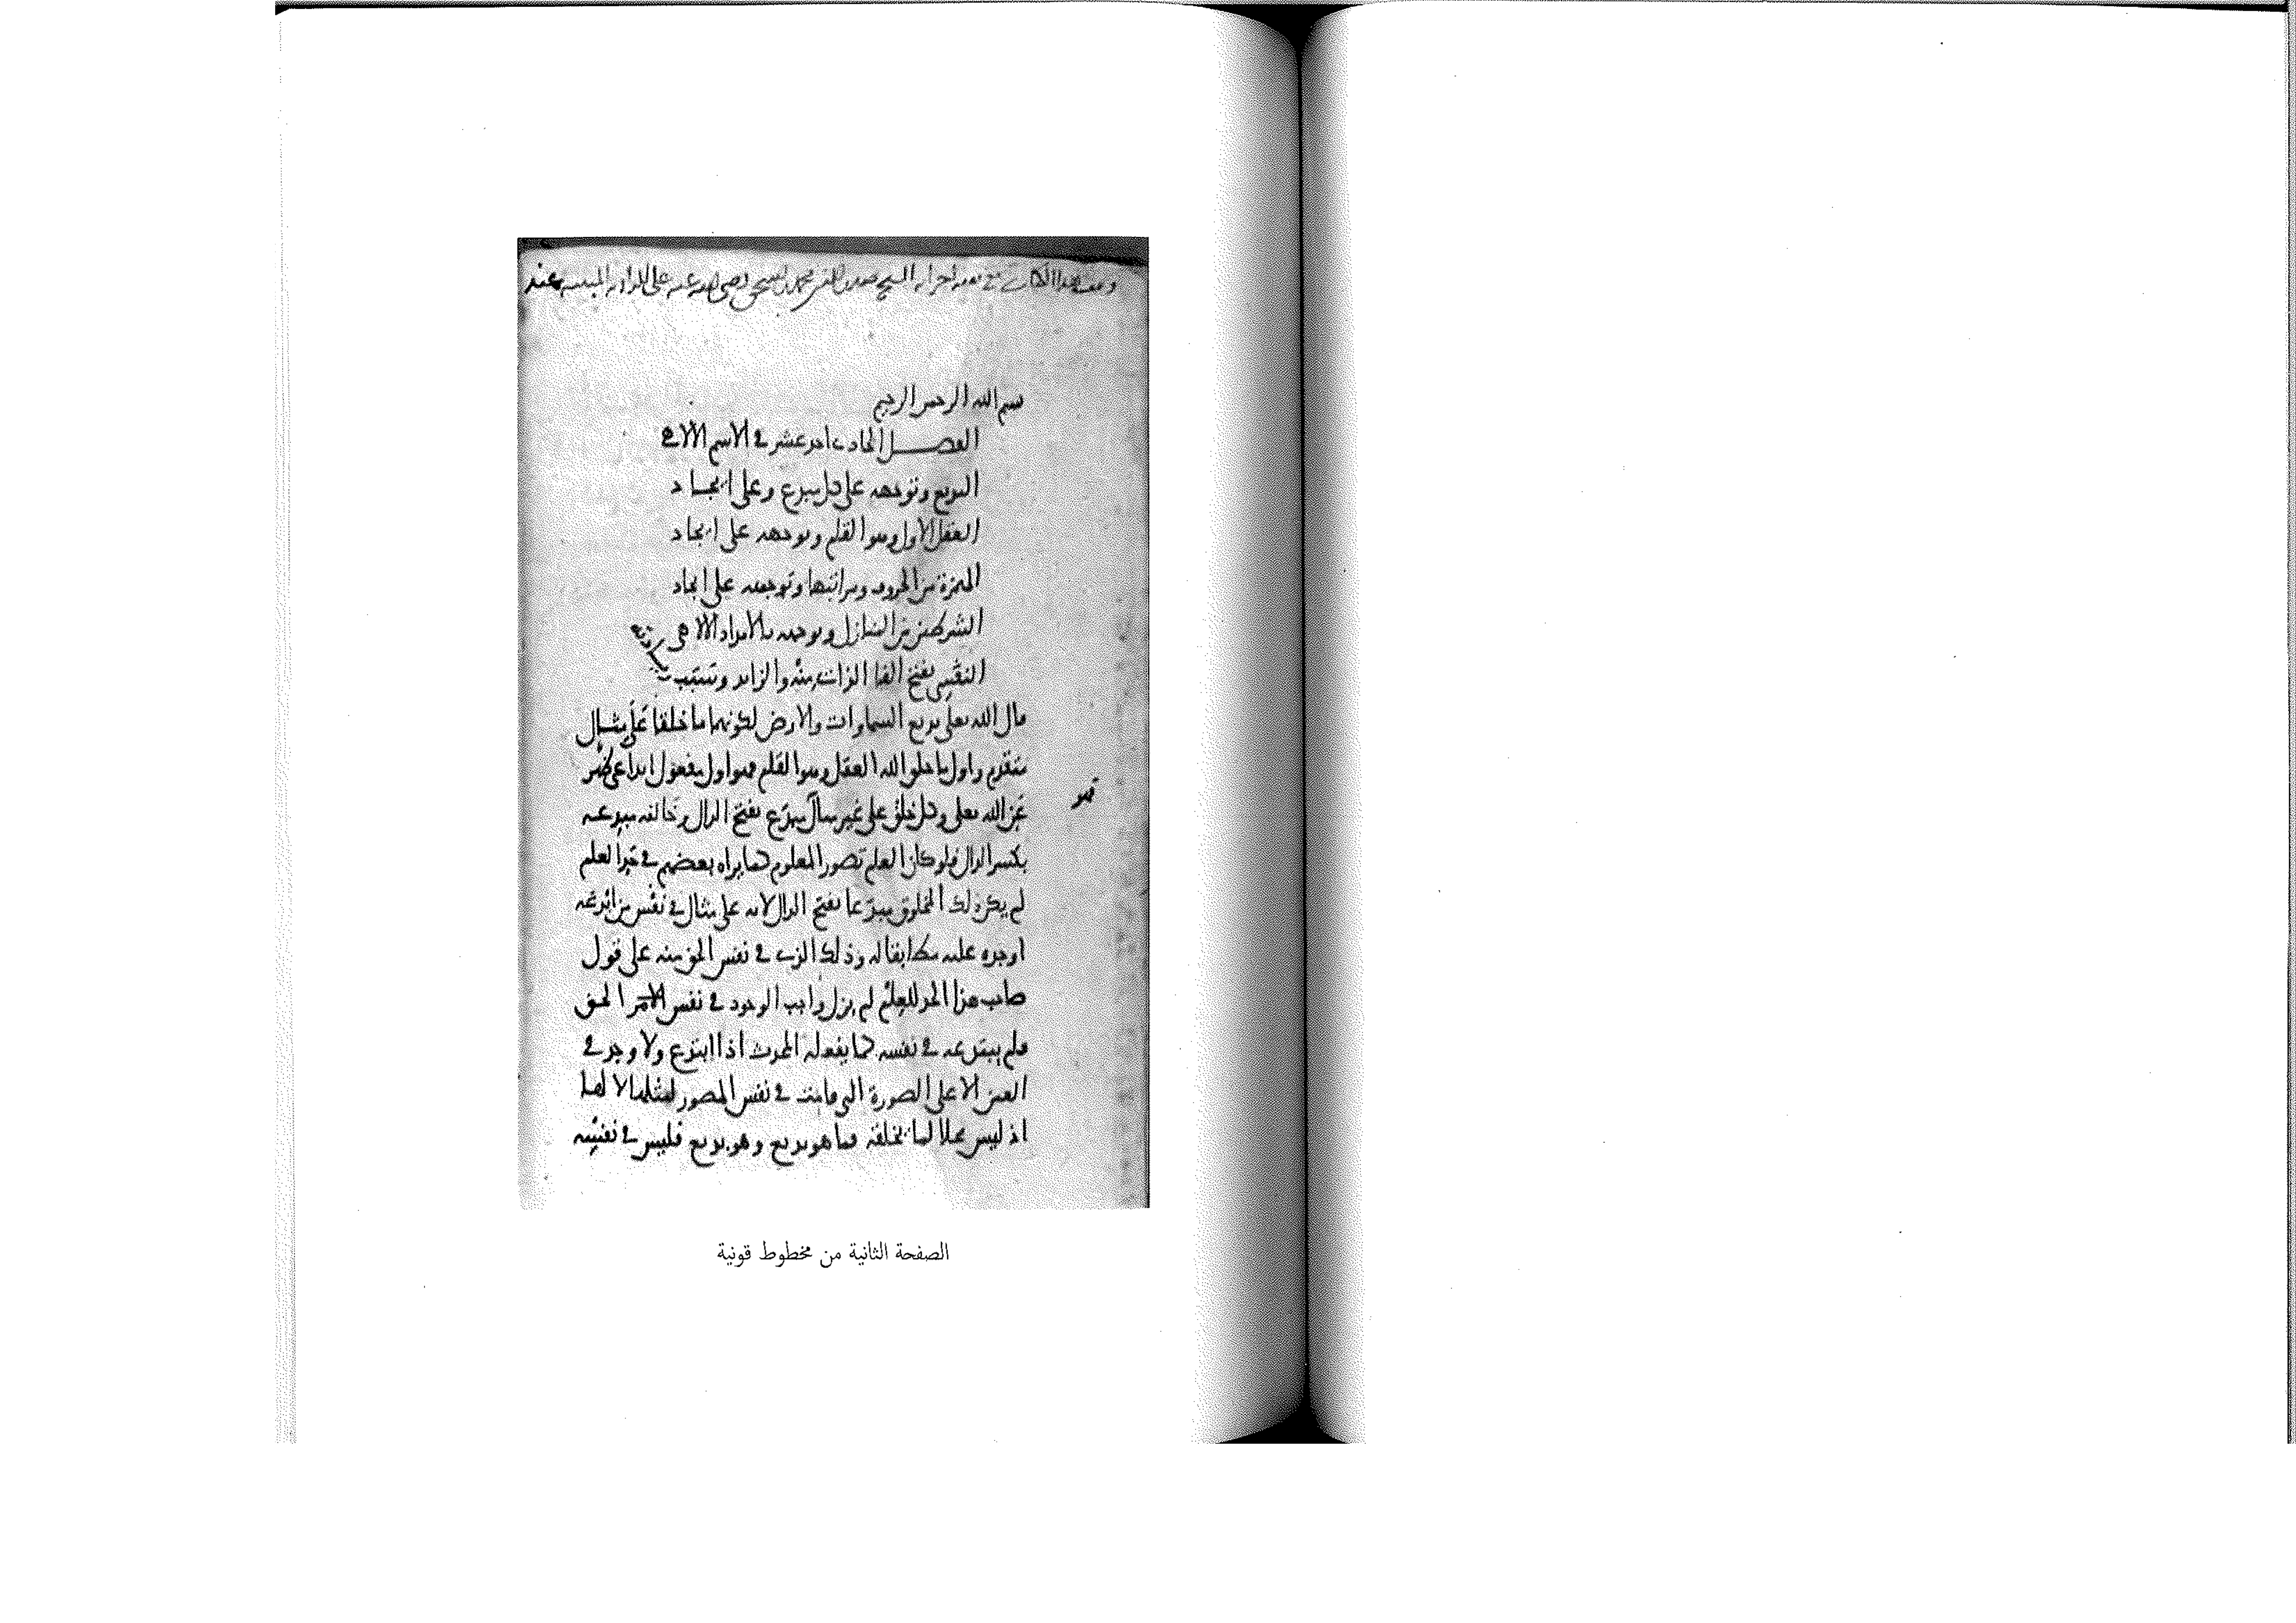 وقف هذا الكتاب مع الشيخ صدر الدين محمد بن اسحق رضي الله عنه على عند
بسم الله الرحمن الرحيم
الفصل الحادي احد عشر في الاسم الالاهي
البديع وتوجهه على كل مبدع وعلى ايجاد
العقل الاول وهو القلم وتوجهه على ايجاد
الهمزة من الحروف ومراتبها وتوجهه على ايجاد
الشرطين من المنازل وتوجهه بالامداد الالاهي
النفسي بفتح الفا الذات منه والزايد وسبب زيادته
قال الله تعلى بديع السماوات والارض لكونهما ما خلقا على مثال
متقدم واول ما خلق الله العقل وهو القلم فهو اول مفعول ابداعي ظهر
عن الله تعلى وكل خلق على غير مثال مبدع بفتح الدال وخالقه مبدعه
بكسر الدال فلو كان العلم تصور المعلوم كما يراه بعضهم في حد العلم
لم يكن ذلك المخلوق مبدعا بفتح الدال لانه على مثال في نفس من ابدعه
اوجده عليه مطابقا له وذلك الذي في نفس الحق منه على قول
صاحب هذا الحد للعلم لم يزل واجب الوجود في نفس الحق
فلم يبتدعه في نفسه كما يفعله المحدث اذا ابتدع ولا وجد في
العين الا على الصورة التي قامت في نفس المصور لمثلها لا لها
اذ ليس محلا لما يخلقه فما هو بديع وهو بديع فليس في نفسه
الصفحة الثانية من مخطوط قونية